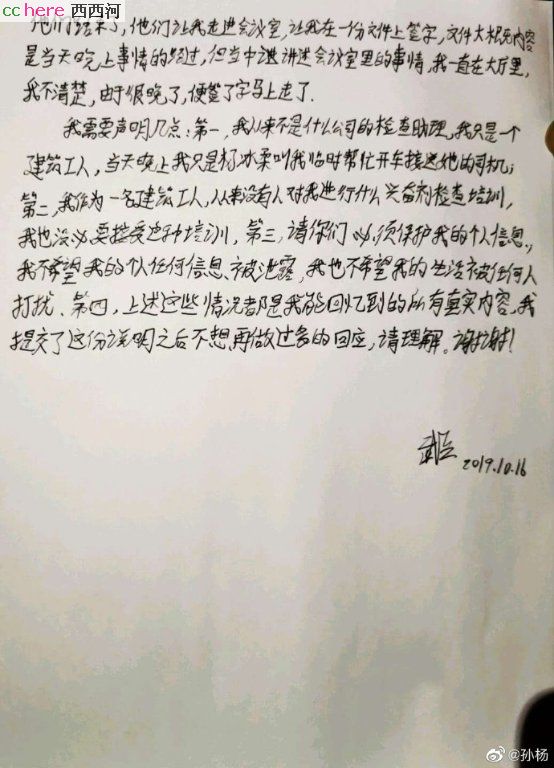 cchere 西西河
他们结束了,他们让我走进会议室,让我在一份文件上签字,文件大概内容
是当天晚上事情的经过,但当中讲述会议室里的事情,我一直在大厅里,
我不清楚,由于很晚了,便签了字马上走了.
我需要声明几点:第一,我从来不是什么公司的检查助理,我只是一个
建筑工人,当天晚上我只是杨冰柔叫我临时帮忙开车接送她的司机;
第二,我作为一名建筑工人,从来没有人对我进行什么兴奋剂检查培训,
我也没必要接受这种培训,第三,请你们必须保护我的个人信息.,
我不希望我的个人任何信息被泄露,我也不希望我的生活被任何人
打扰、第四,上述这些情况都是我能回忆到的所有真实内容,我
提交了这份说明之后不想再做过多的回应,请理解。谢谢!
2019.10.16
@孙杨